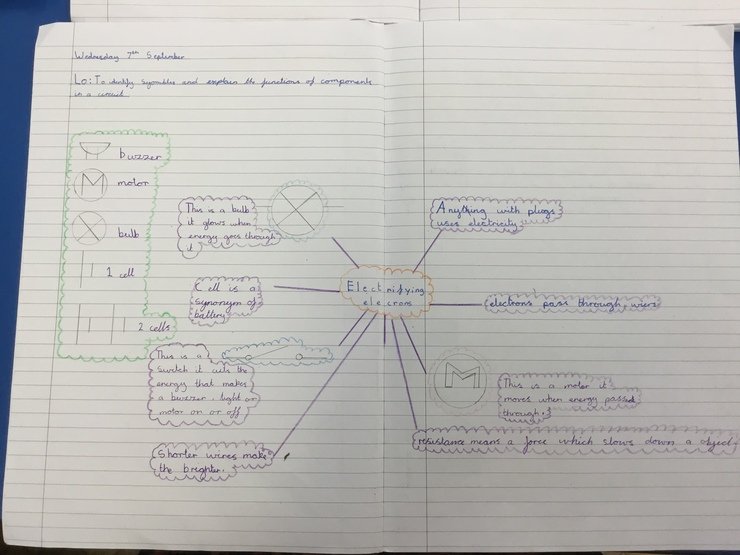 Wednesday 7th September
Lo: To identify symobles and explain the functions of components
in a circuit
buzzer
motor
bulb
1 cell
2 cells
This is a bulb
it glows when
energy goes through
it
Cell is a
synonym of
battery
This is a
switch it cuts the
energy that makes
a buzzer, light or
motor on or off
Shorter wires make
the brighter.
Electrifying
elecrons
Anything with plugs
uses electricity
electrons pass through wires
M
This is a motor it
moves when energy passed
through.
resistance means a force which slows down a object